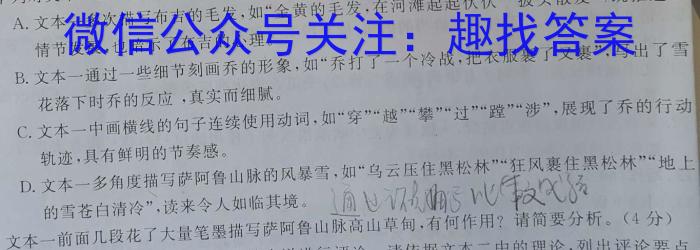 A. 文本一多次描写布吉的毛发，如“金黄的毛发，在河滩起起伏伏”
情节发展 也暗示了布吉的心理
微信公众号关注：趣找答案
B. 文本一通过一些细节刻画乔的形象，如“乔打了一个冷战，把衣服裹了又裹”写出了雪
花落下时乔的反应，真实而细腻。
C. 文本一中画横线的句子连续使用动词，如“穿”“越”“攀”“过”“蹚”“涉”，展现了乔的行动
轨迹，具有鲜明的节奏感。
D. 文本一多角度描写萨阿鲁山脉的风暴雪，如“乌云压住黑松林”“狂风裹住黑松林”“地上
的雪苍白清冷”，读来令人如临其境。
文本一前面几段花了大量笔墨描写萨阿鲁山脉高山草甸，有何作用？请简要分析。（4分）
请依据文本二中的理论，列出评论要点